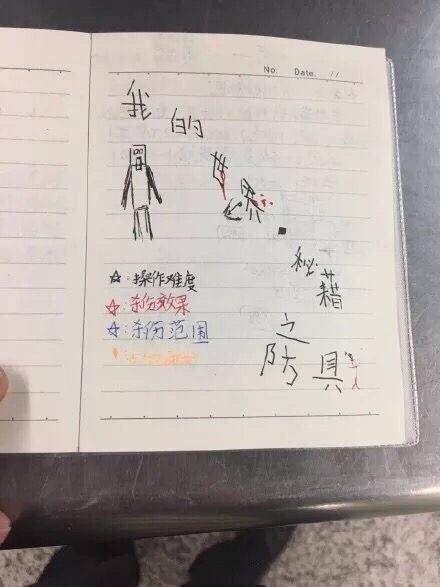 No. Date. / /
我的
秘藉
之防具
☆:操作难度
☆:杀伤效果
☆:杀伤范围